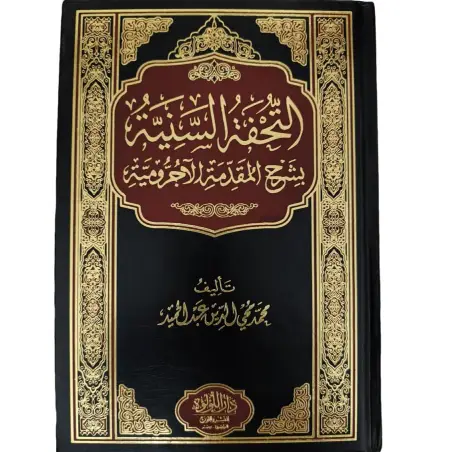 التُّحْفَةُ السَّنِيَّةُ
بِشَرْحِ المُقَدِّمَةِ الآجُرُّومِيَّةِ
تَأليفُ
محمد محيي الدين عبد الحميد
دار اللؤلؤة